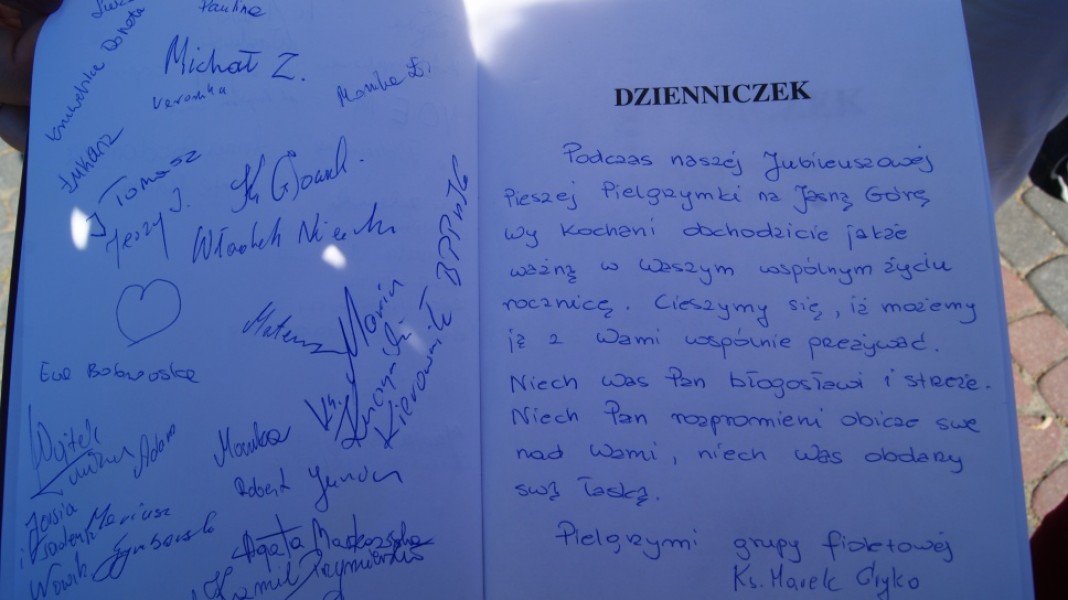 Paulina
Michał Z.
Veronika
Monika Ł.
Donata
Łukasz
Tomasz
Jerzy J.
Władek
Mateusz
Marcin
Kierownik BPPnJG
Ewa
Wojtek
Adam
Monika
Robert
Josia
i Mariusz
Agata
Kamil
DZIENNICZEK
Podczas naszej Jubileuszowej
Pieszej Pielgrzymki na Jasną Górę
wy kochani obchodzicie jakże
ważną w Waszym wspólnym życiu
rocznicę. Cieszymy się, iż możemy
ją z Wami wspólnie przeżywać.
Niech Was Pan błogosławi i strzeże.
Niech Pan rozpromieni oblicze swe
nad Wami, niech Was obdarzy
swą łaską.
Pielgrzymi grupy fioletowej
Ks. Marek